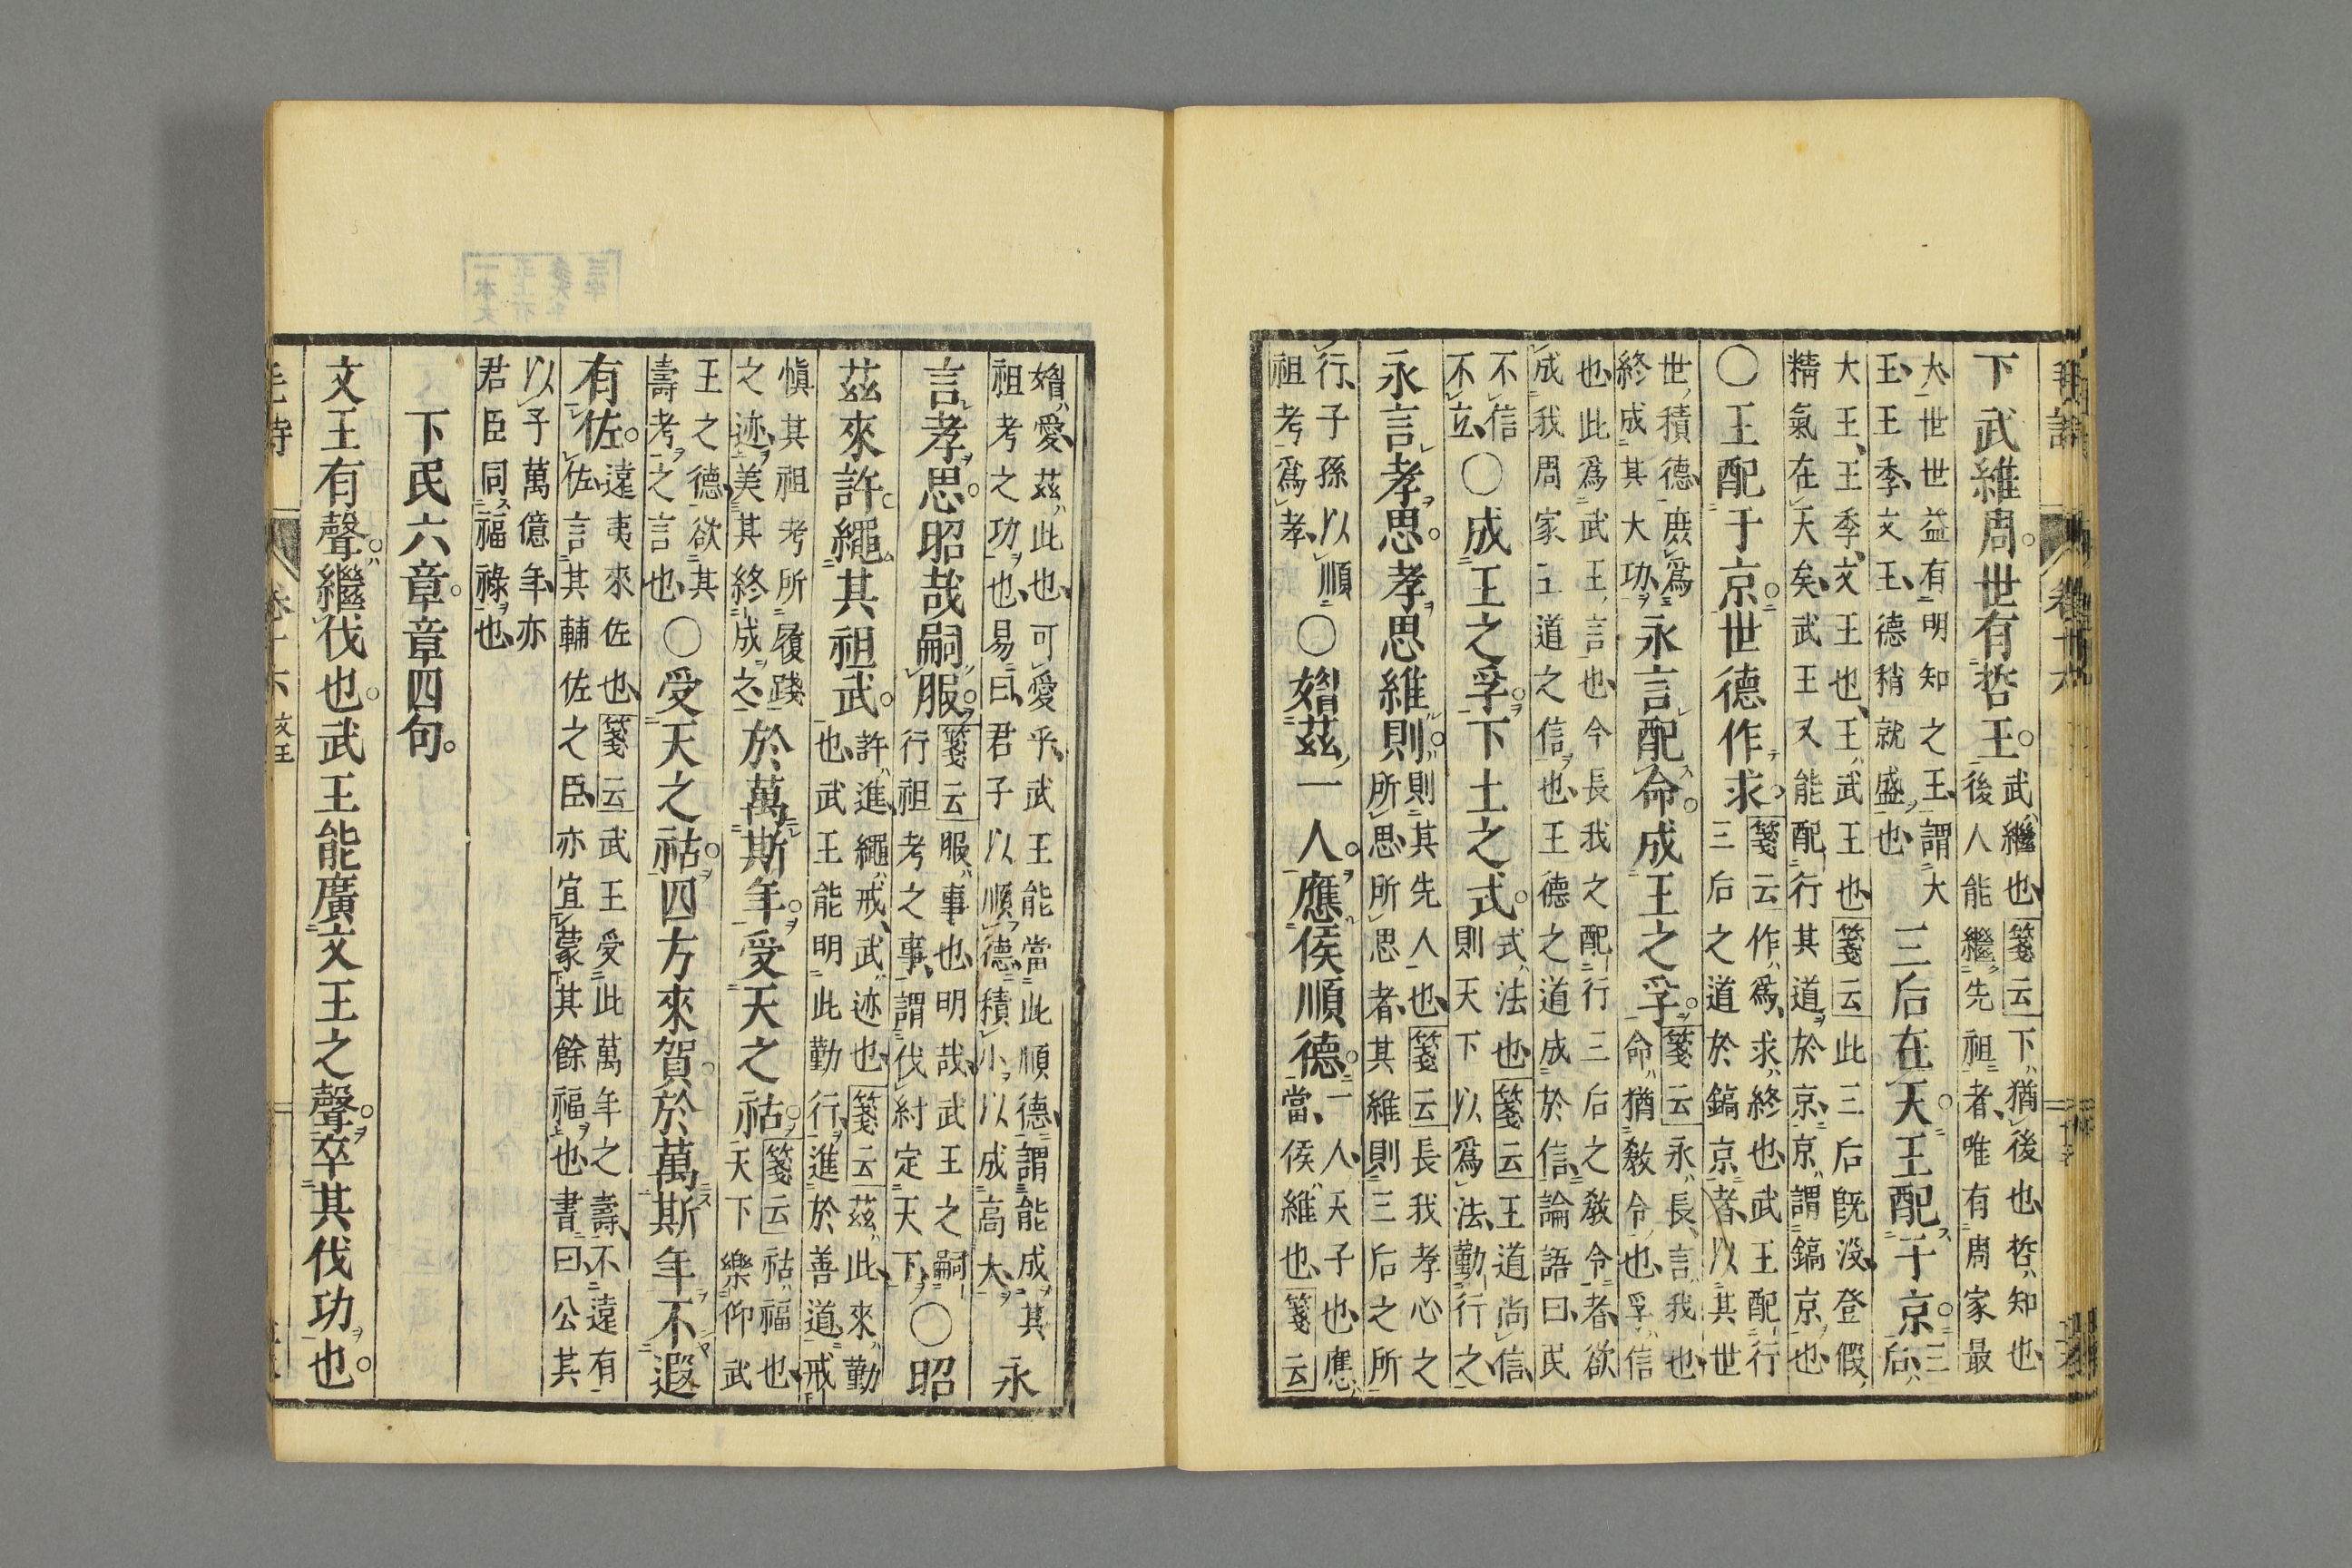 下武維周世有哲王武繼也箋云下猶後也哲知也
後人能繼先祖者唯有周家最
大世世益有明知之王謂大
王王季文王德稍就盛也三后在天王配于京三后
大王王季文王也王武王也箋云此三后既没登假
精氣在天矣武王又能配行其道於京京謂鎬京也
〇王配于京世德作求箋云作爲求終也武王配行
三后之道於鎬京者以其世
世積德庶爲
終成其大功永言配命成王之孚箋云永長言我也
命猶敎令也孚信
也此爲武王言也今長我之配行三后之敎令者欲
成我周家王道之信也王德之道成於信論語曰民
不信
不立〇成王之孚下土之式式法也箋云王道尚信
則天下以爲法勤行之
永言孝思孝思維則則其先人也箋云長我孝心之
所思所思者其維則三后之所
行子孫以順
祖考爲孝〇媚茲一人應侯順德一人天子也應
當侯維也箋云
媚愛茲此也可愛乎武王能當此順德謂能成其
祖考之功也易曰君子以順德積小以成高大永
言孝思昭哉嗣服箋云服事也明哉武王之嗣
行祖考之事謂伐紂定天下〇昭
茲來許繩其祖武許進繩戒武迹也箋云茲此來勤
也武王能明此勤行進於善道戒
愼其祖考所履踐
之迹美其終成之於萬斯年受天之祜箋云祜福也
天下樂仰武
王之德欲其
壽考之言也〇受天之祜四方來賀於萬斯年不遐
有佐遠夷來佐也箋云武王受此萬年之壽不遠有
佐言其輔佐之臣亦宜蒙其餘福也書曰公其
以予萬億年亦
君臣同福祿也
下民六章章四句
文王有聲繼伐也武王能廣文王之聲卒其伐功也